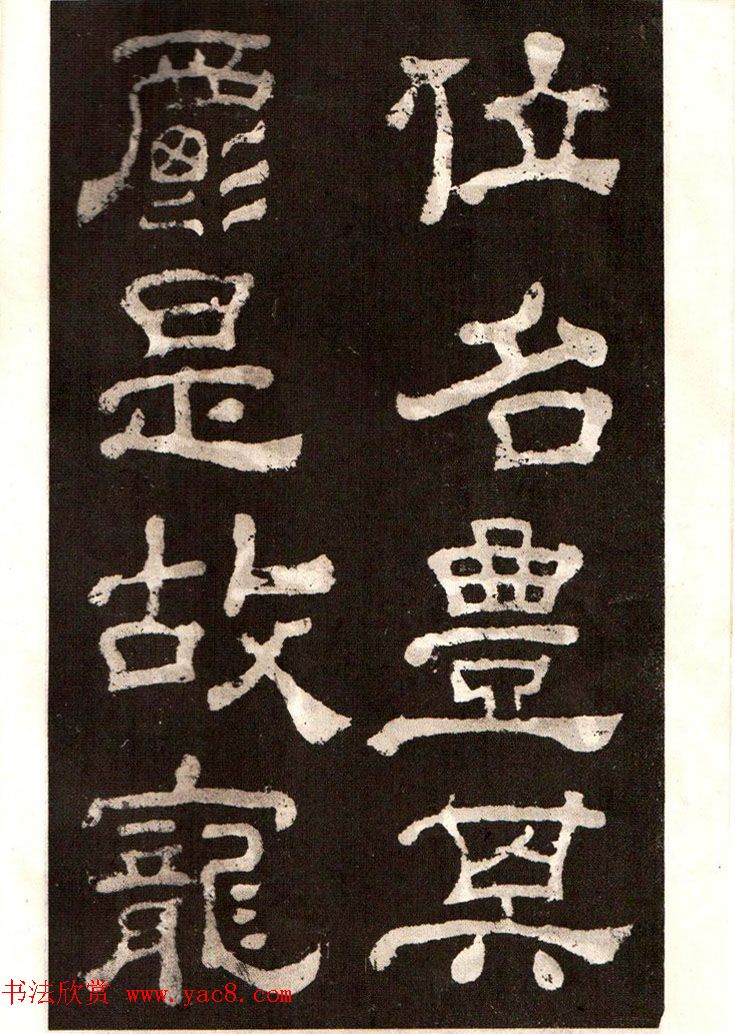 位名豐其
爵是故寵
书法欣赏 www.yac8.com